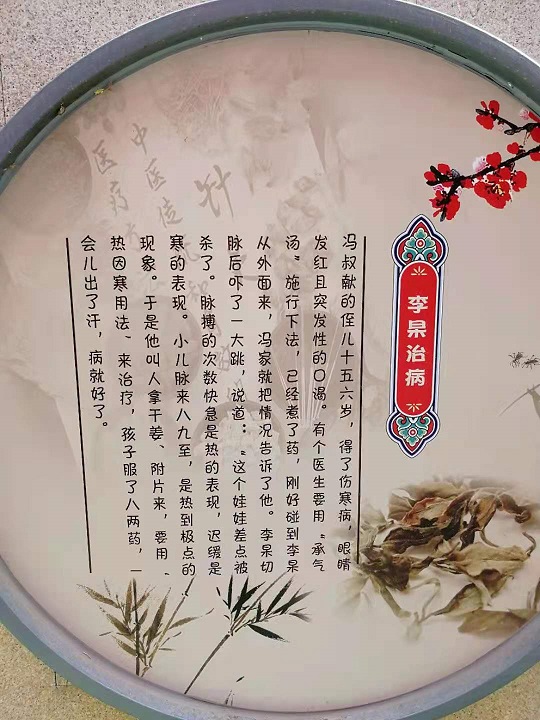 李杲治病
冯叔献的侄儿十五六岁，得了伤寒病，眼睛
发红且突发性的口渴。有个医生要用“承气
汤”施行下法，已经煮了药，刚好碰到李杲
从外面来，冯家就把情况告诉了他。李杲切
脉后吓了一大跳，说道：“这个娃娃差点被
杀了。脉搏的次数快急是热的表现，迟缓是
寒的表现。小儿脉来八九至，是热到极点的
现象。于是他叫人拿干姜、附片来，要用‘
热因寒用法、来治疗，孩子服了八两药，一
会儿出了汗，病就好了。
针
中医传
医疗